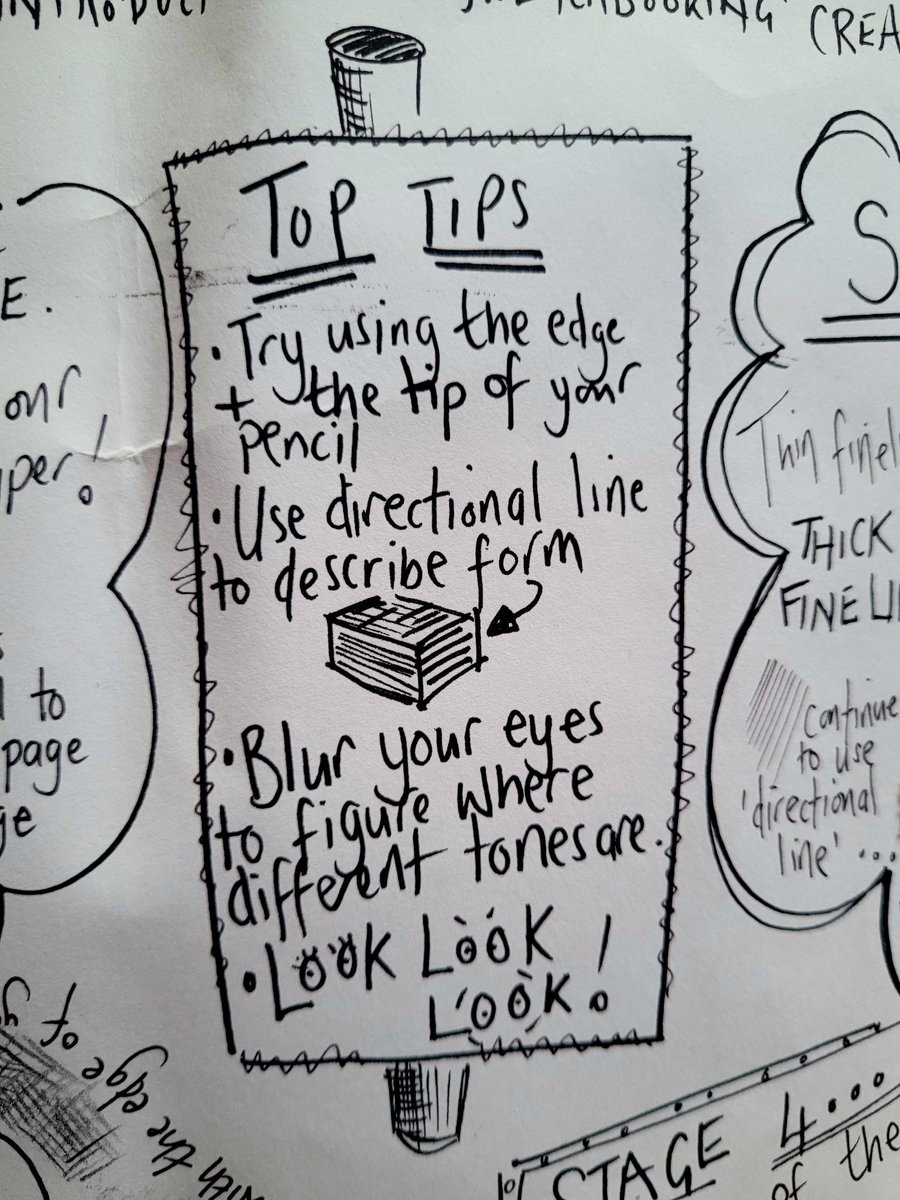 CREA
TOP TIPS
• Try using the edge
+ the tip of your
pencil
• Use directional line
to describe form
• Blur your eyes
to figure where
different tones are.
• LOOK LOOK
LOOK!
E.
our
per!
to
page
ge
S
Thin finel
THICK
FINELI
Continue
to use
'directional
line' ...
of
edge
the
STAGE 4...
of the